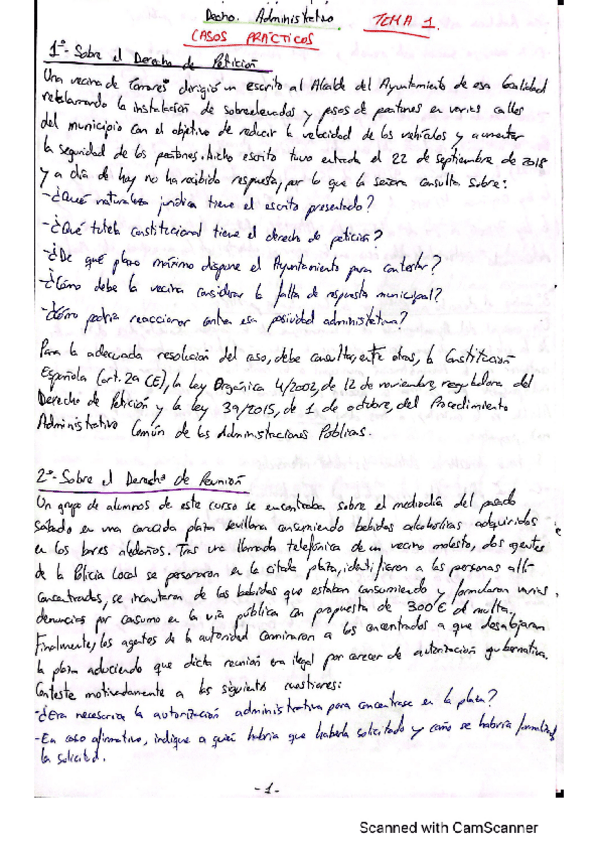 Dcho. Administrativo TEMA 1.
CASOS PRÁCTICOS
1º- Sobre el Derecho de Petición
Una vecina de Tomares dirigió un escrito al Alcalde del Ayuntamiento de esa localidad
reclamando la instalación de sobreelevados y pasos de peatones en varias calles
del municipio con el objetivo de reducir la velocidad de los vehículos y aumentar
la seguridad de los peatones. Dicho escrito tuvo entrada el 22 de septiembre de 2018
y a día de hoy no ha recibido respuesta, por lo que la señora consulta sobre:
-¿Qué naturaleza jurídica tiene el escrito presentado?
-¿Qué tutela constitucional tiene el derecho de petición?
-¿De qué plazo máximo dispone el Ayuntamiento para contestar?
-¿Cómo debe la vecina considerar la falta de respuesta municipal?
-¿Cómo podría reaccionar contra esa pasividad administrativa?
Para la adecuada resolución del caso, debe consultar, entre otras, la Constitución
Española (art. 29 CE), la Ley Orgánica 4/2002, de 12 de noviembre, reguladora del
Derecho de Petición y la Ley 39/2015, de 1 de octubre, del Procedimiento
Administrativo Común de las Administraciones Públicas.
2º- Sobre el Derecho de Reunión
Un grupo de alumnos de este curso se encontraba sobre el mediodía del pasado
sábado en una conocida plaza sevillana consumiendo bebidas alcohólicas adquiridas
en los bares aledaños. Tras una llamada telefónica de un vecino molesto, dos agentes
de la Policía Local se personaron en la citada plaza, identificaron a las personas allí
concentradas, se incautaron de las bebidas que estaban consumiendo y formularon varias
denuncias por consumo en la vía pública con propuesta de 300€ de multa.
Finalmente, los agentes de la autoridad conminaron a los concentrados a que desalojaran
la plaza aduciendo que dicta reunión era ilegal por carecer de autorización gubernativa.
Conteste motivadamente a las siguientes cuestiones:
-¿Era necesaria la autorización administrativa para concentrarse en la plaza?
-En caso afirmativo, indique a quién habría que haberla solicitado y cómo se habría formalizado
la solicitud.
-1-
Scanned with CamScanner